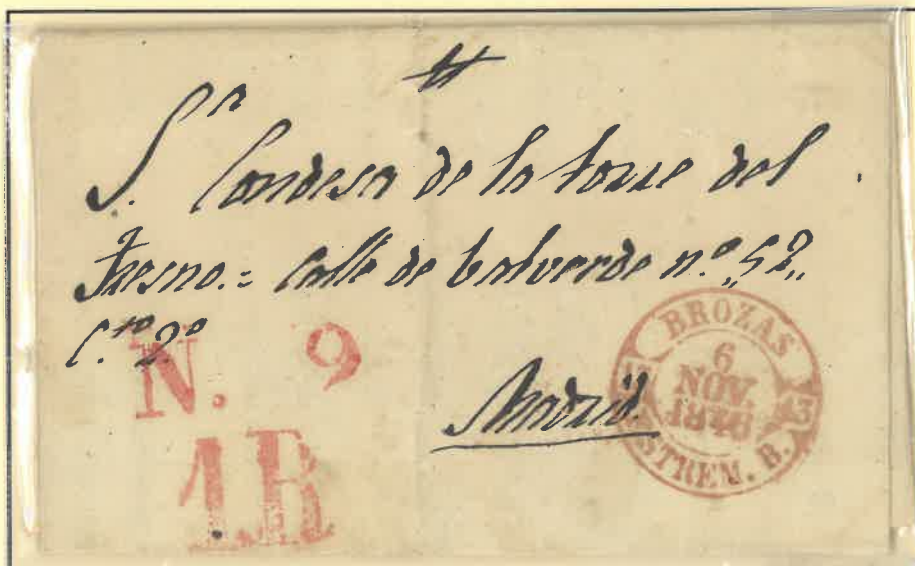 S.ra Condesa de la torre del
Fresno.= Calle de Valverde n.º 52,,
C.to 2º
Madrid
N. 9
1R
BROZAS
6
NOV.
ESTREM. B.